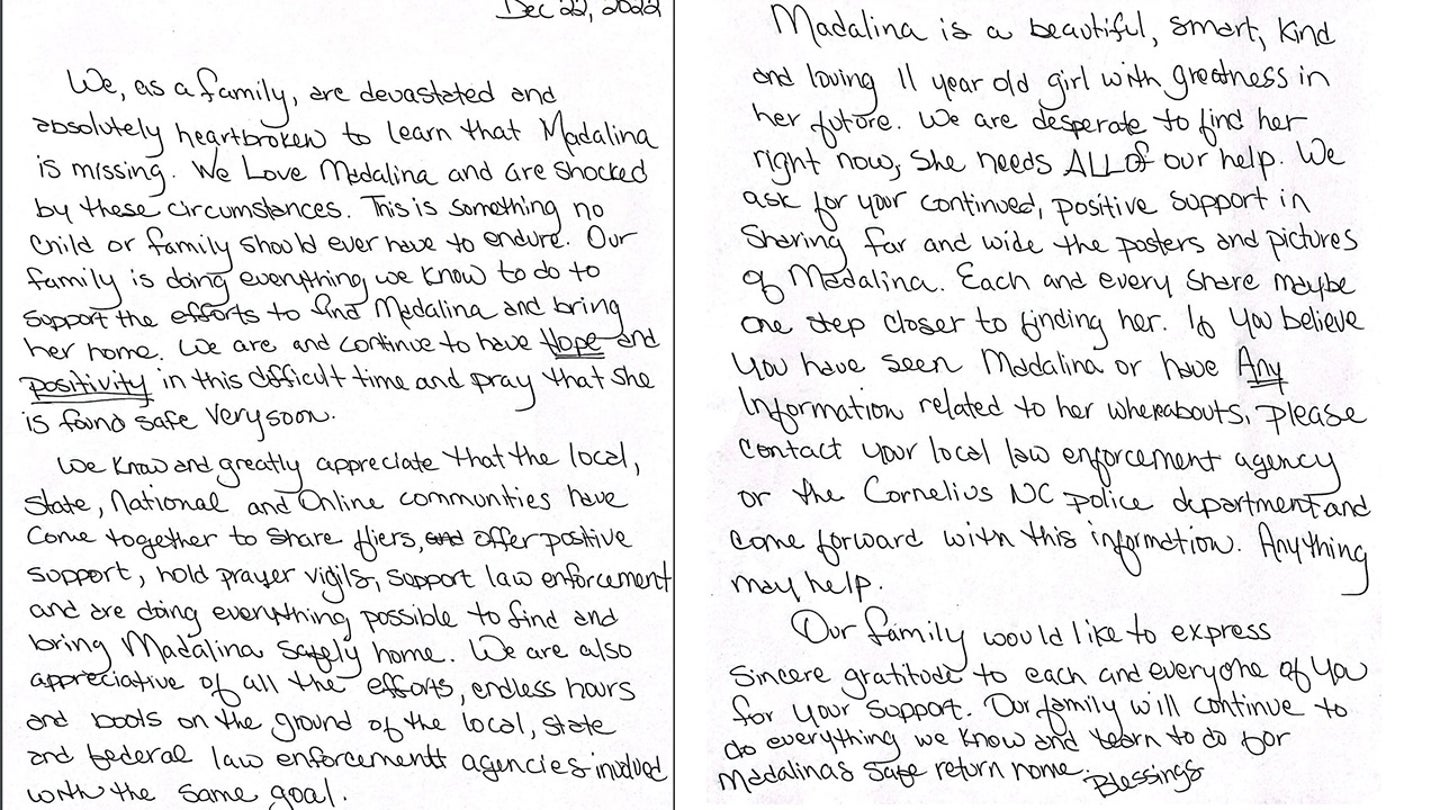 Dec 22, 2022
We, as a family, are devastated and
absolutely heartbroken to learn that Madalina
is missing. We Love Madalina and are shocked
by these circumstances. This is something no
Child or family should ever have to endure. Our
family is doing everything we know to do to
support the efforts to find Madalina and bring
her home. We are and continue to have Hope and
positivity in this difficult time and pray that she
is found safe very soon.
We know and greatly appreciate that the local,
State, National and Online communities have
Come together to share fliers, and offer positive
support, hold prayer vigils, support law enforcement
and are doing everything possible to find and
bring Madalina safely home. We are also
appreciative of all the efforts, endless hours
and boots on the ground of the local, state
and federal law enforcement agencies involved
with the same goal.
Madalina is a beautiful, smart, Kind
and loving 11 year old girl with greatness in
her future. We are desperate to find her
right now, She needs ALL of our help. We
ask for your continued, positive support in
Sharing far and wide the posters and pictures
of Madalina. Each and every share maybe
one step closer to finding her. If you believe
you have seen Madalina or have Any
Information related to her whereabouts, please
contact your local law enforcement agency
or the Cornelius NC police department and
come forward with this information. Anything
may help.
Our family would like to express
sincere gratitude to each and everyone of you
for your support. Our family will continue to
do everything we know and learn to do for
Madalinas safe return home. Blessings